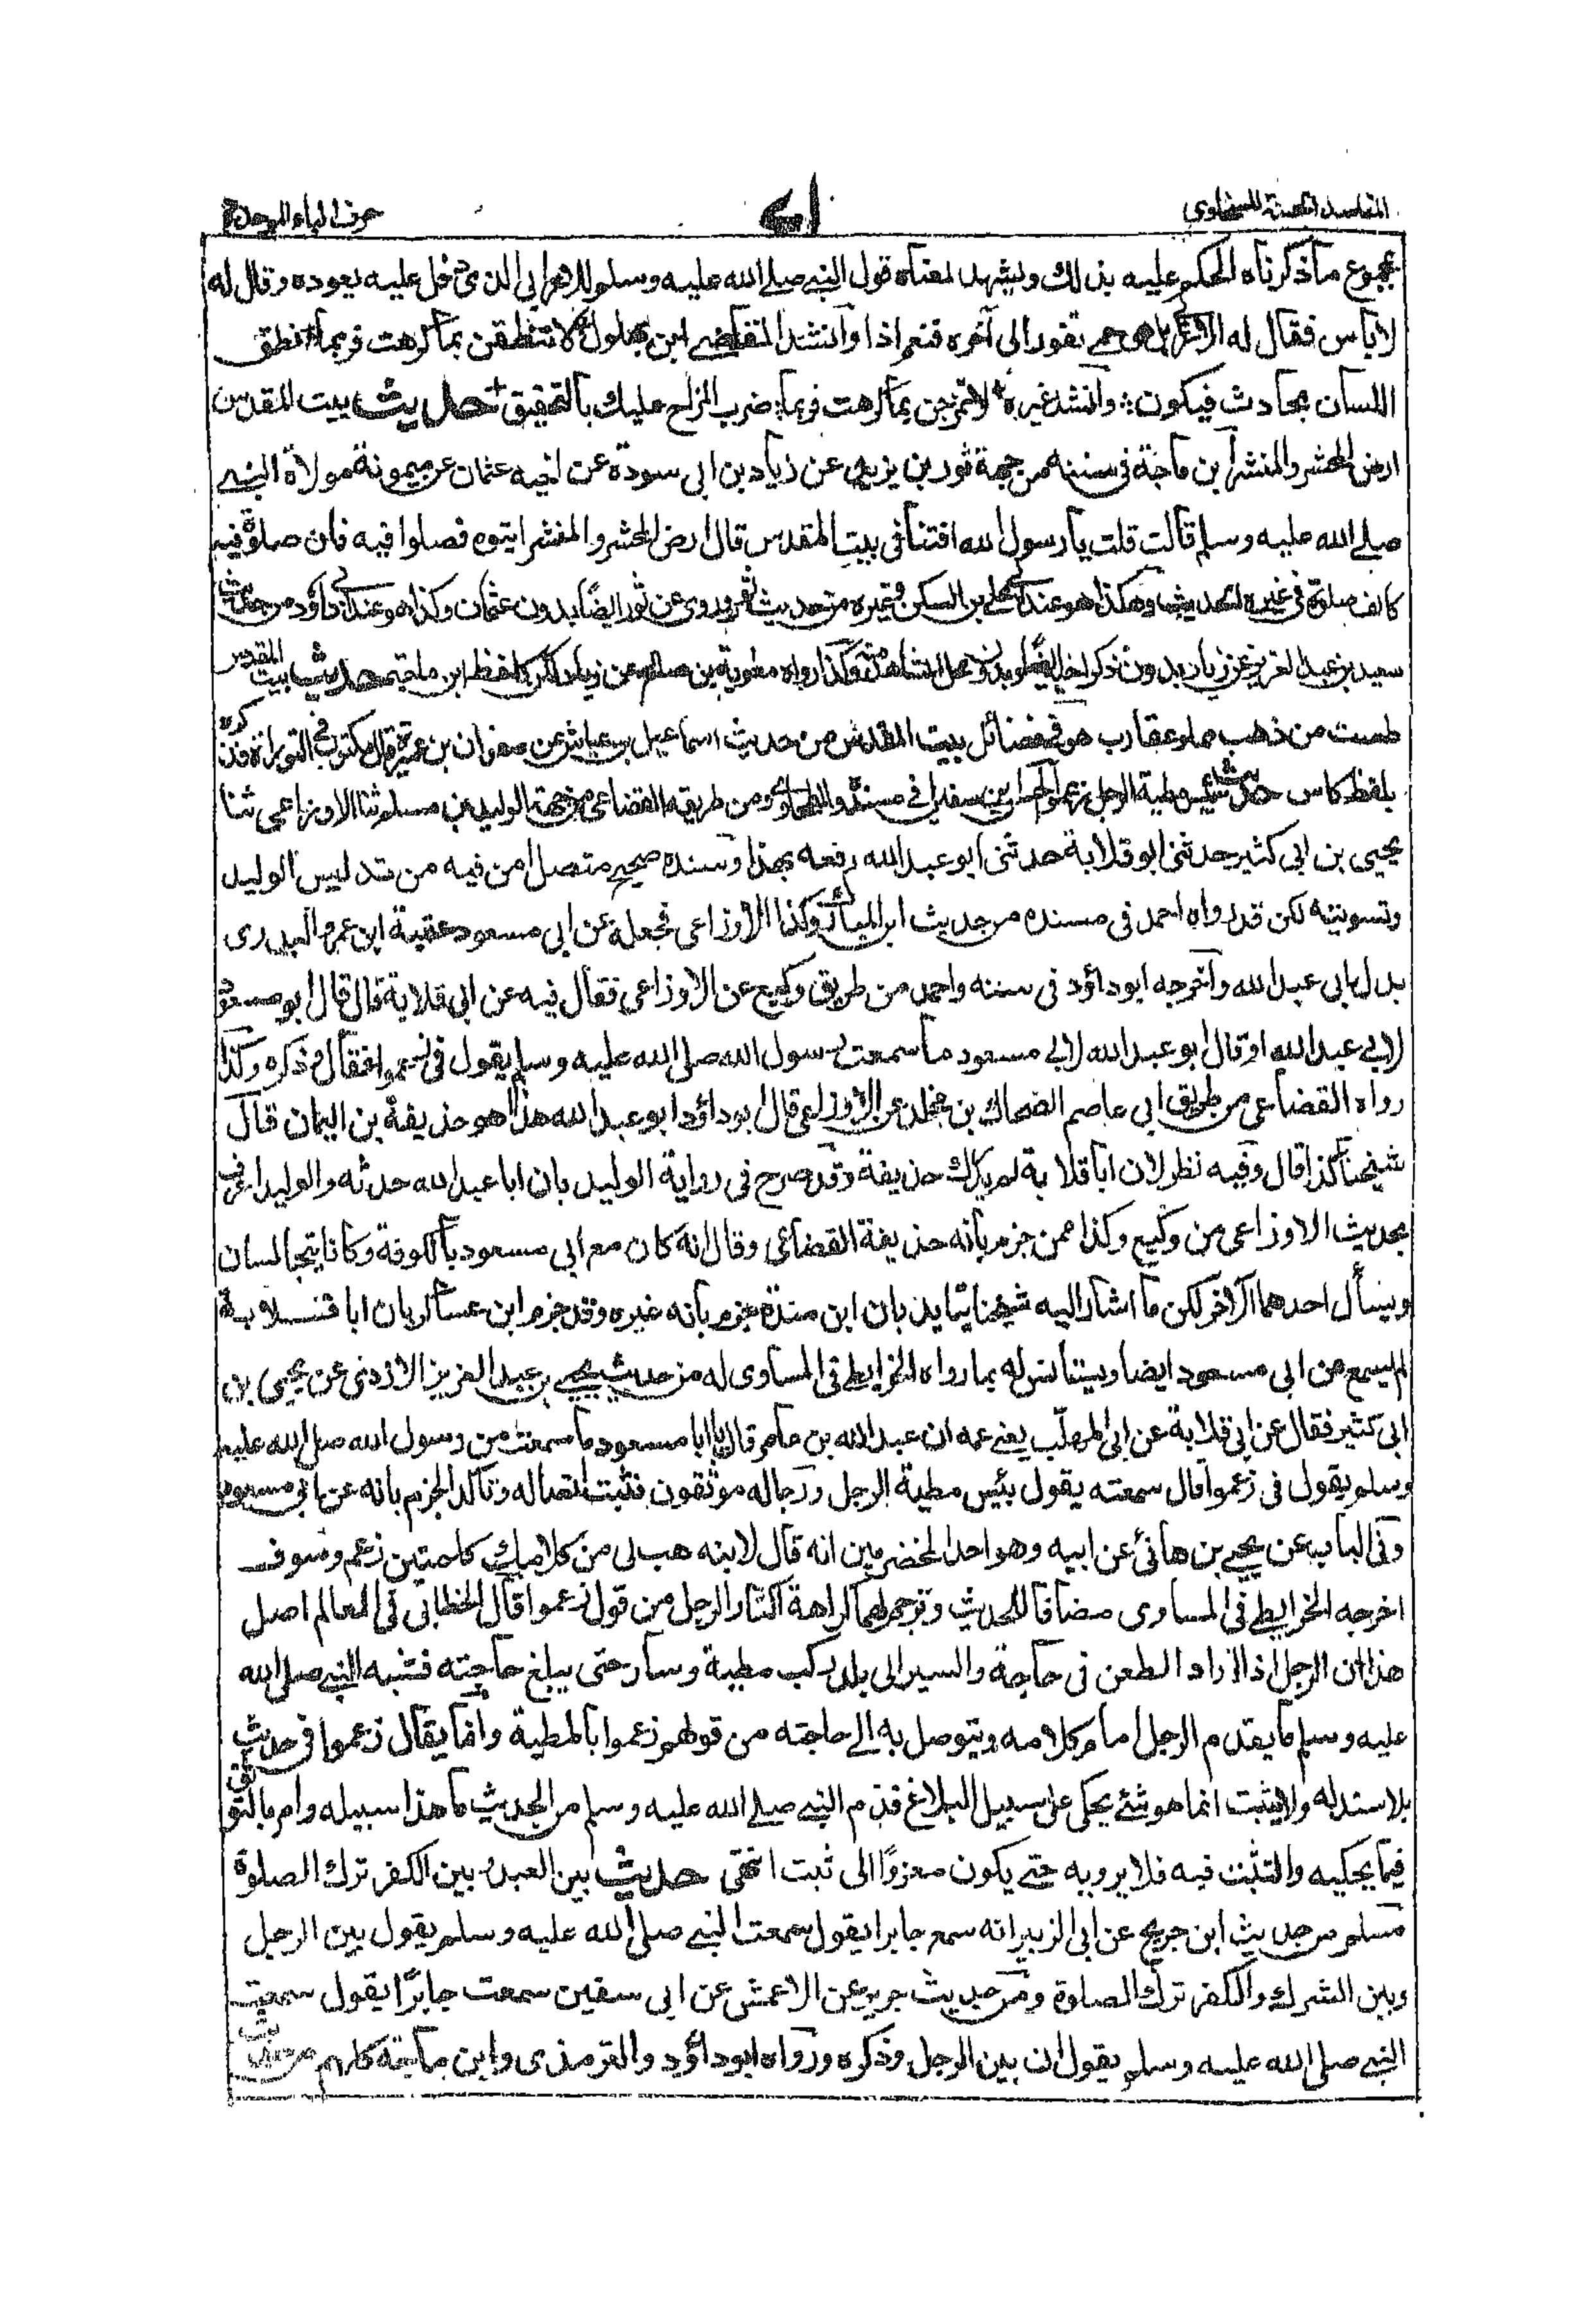 المقاصد الحسنة للسخاوي
حرف الباء الموحدة
بمجموع ما ذكرناه الحكم عليه بذلك ويشهد لمعناه قول النبي صلى الله عليه وسلم للاعرابي الذي دخل عليه يعوده وقال له
لا باس فقال له الاعرابي بل هي حمى تفور الى آخره فنعم اذا وانشد ابن بهلول لا تنطقن بما كرهت فربما نطق
اللسان بحادث فيكون وانشد غيره لا تمزحن بما كرهت فربما ضرب المزاح عليك بالتحقيق حديث بيت المقدس
ارض المحشر والمنشر ابن ماجة في سننه من جهة ثور بن يزيد عن زياد بن ابي سودة عن اخيه عثمان عن ميمونة مولاة النبي
صلى الله عليه وسلم قالت قلت يا رسول الله افتنا في بيت المقدس قال ارض المحشر والمنشر ايتوه فصلوا فيه فان صلوة فيه
كالف صلوة في غيره الحديث وهكذا هو عند ابي علي بن السكن وغيره من حديث ثور وروي عن ثور ايضا بدون عثمان وكذا هو عند ابي داؤد من حديث
سعيد بن عبد العزيز عن زياد بدون ذكر اخيه وكذا رواه معوية بن صالح عن زياد لكن كلفظ ابن ماجة حديث بيت المقدس
طست من ذهب مملو عقارب هو في فضائل بيت المقدس من حديث اسماعيل بن عياش عن صفوان بن عمرو قال مكتوب في التوراة فذكره
بلفظ كاس حديث بئس مطية الرجل زعموا الحسن بن سفين في مسنده والطحاوي ومن طريقه القضاعي من جهة الوليد بن مسلم ثنا الاوزاعي ثنا
يحيى بن ابي كثير حدثني ابو قلابة حدثني ابو عبد الله رفعه بهذا وسنده صحيح متصل امن فيه من تدليس الوليد
وتسويته لكن قد رواه احمد في مسنده من حديث ابن المبارك وكذا الاوزاعي فجعله عن ابي مسعود عقبة ابن عمرو البدري
بدل ابي عبد الله واخرجه ابو داؤد في سننه واحمد من طريق وكيع عن الاوزاعي فقال فيه عن ابي قلابة قال قال ابو مسعود
لابي عبد الله او قال ابو عبد الله لابي مسعود ما سمعت رسول الله صلى الله عليه وسلم يقول في زعموا فقال وذكره وكذا
رواه القضاعي من طريق ابي عاصم الضحاك بن مخلد عن الاوزاعي قال ابو داؤد ابو عبد الله هذا هو حذيفة بن اليمان قال
شيخنا كذا قال وفيه نظر لان ابا قلابة لم يدرك حذيفة وقد صرح في رواية الوليد بان ابا عبد الله حدثه والوليد اعرف
بحديث الاوزاعي من وكيع وكذا ممن جزم بانه حذيفة القضاعي وقال انه كان مع ابي مسعود بالكوفة وكانا يتجالسان
ويسأل احدهما الآخر لكن ما اشار اليه شيخنا يتايد بان ابن مندة جزم بانه غيره وقد جزم ابن عساكر بان ابا قلابة
لم يسمع من ابي مسعود ايضا ويستانس له بما رواه الخرايطي في المساوى له من حديث يحيى بن عبد العزيز الاردني عن يحيى بن
ابي كثير فقال عن ابي قلابة عن ابي المهلب يعني عمه ان عبد الله بن عامر قال يا ابا مسعود ما سمعت من رسول الله صلى الله عليه
وسلم يقول في زعموا قال سمعته يقول بئس مطية الرجل ورجاله موثقون فثبت اتصاله وتاكد الجزم بانه عن ابي مسعود
وفي الباب عن يحيى بن هانئ عن ابيه وهو احد المخضرمين انه قال لابنه هب لي من كلامك كلمتين زعم وسوف
اخرجه الخرايطي في المساوى مضافا للحديث وترجم لهما كراهة اكثار الرجل من قول زعموا قال الخطابي في المعالم اصل
هذا ان الرجل اذا اراد الطعن في حاجة والسير الى بلد ركب مطية وسار حتى يبلغ حاجته فشبه النبي صلى الله
عليه وسلم ما يقدم الرجل امام كلامه ويتوصل به الى حاجته من قولهم زعموا بالمطية وانما يقال زعموا في حديث
بلا سند له ولا يثبت انما هو شئ يحكى على سبيل البلاغ فذم النبي صلى الله عليه وسلم من الحديث ما هذا سبيله وامر بالتوثق
فيما يحكيه والتثبت فيه فلا يرويه حتى يكون معزوا الى ثبت انتهى حديث بين العبد وبين الكفر ترك الصلوة
مسلم من حديث ابن جريج عن ابي الزبير انه سمع جابرا يقول سمعت النبي صلى الله عليه وسلم يقول بين الرجل
وبين الشرك والكفر ترك الصلاوة ومن حديث جرير عن الاعمش عن ابي سفين سمعت جابرا يقول سمعت
النبي صلى الله عليه وسلم يقول ان بين الرجل وذكره ورواه ابو داؤد والترمذى وابن ماجة كلهم من حديث